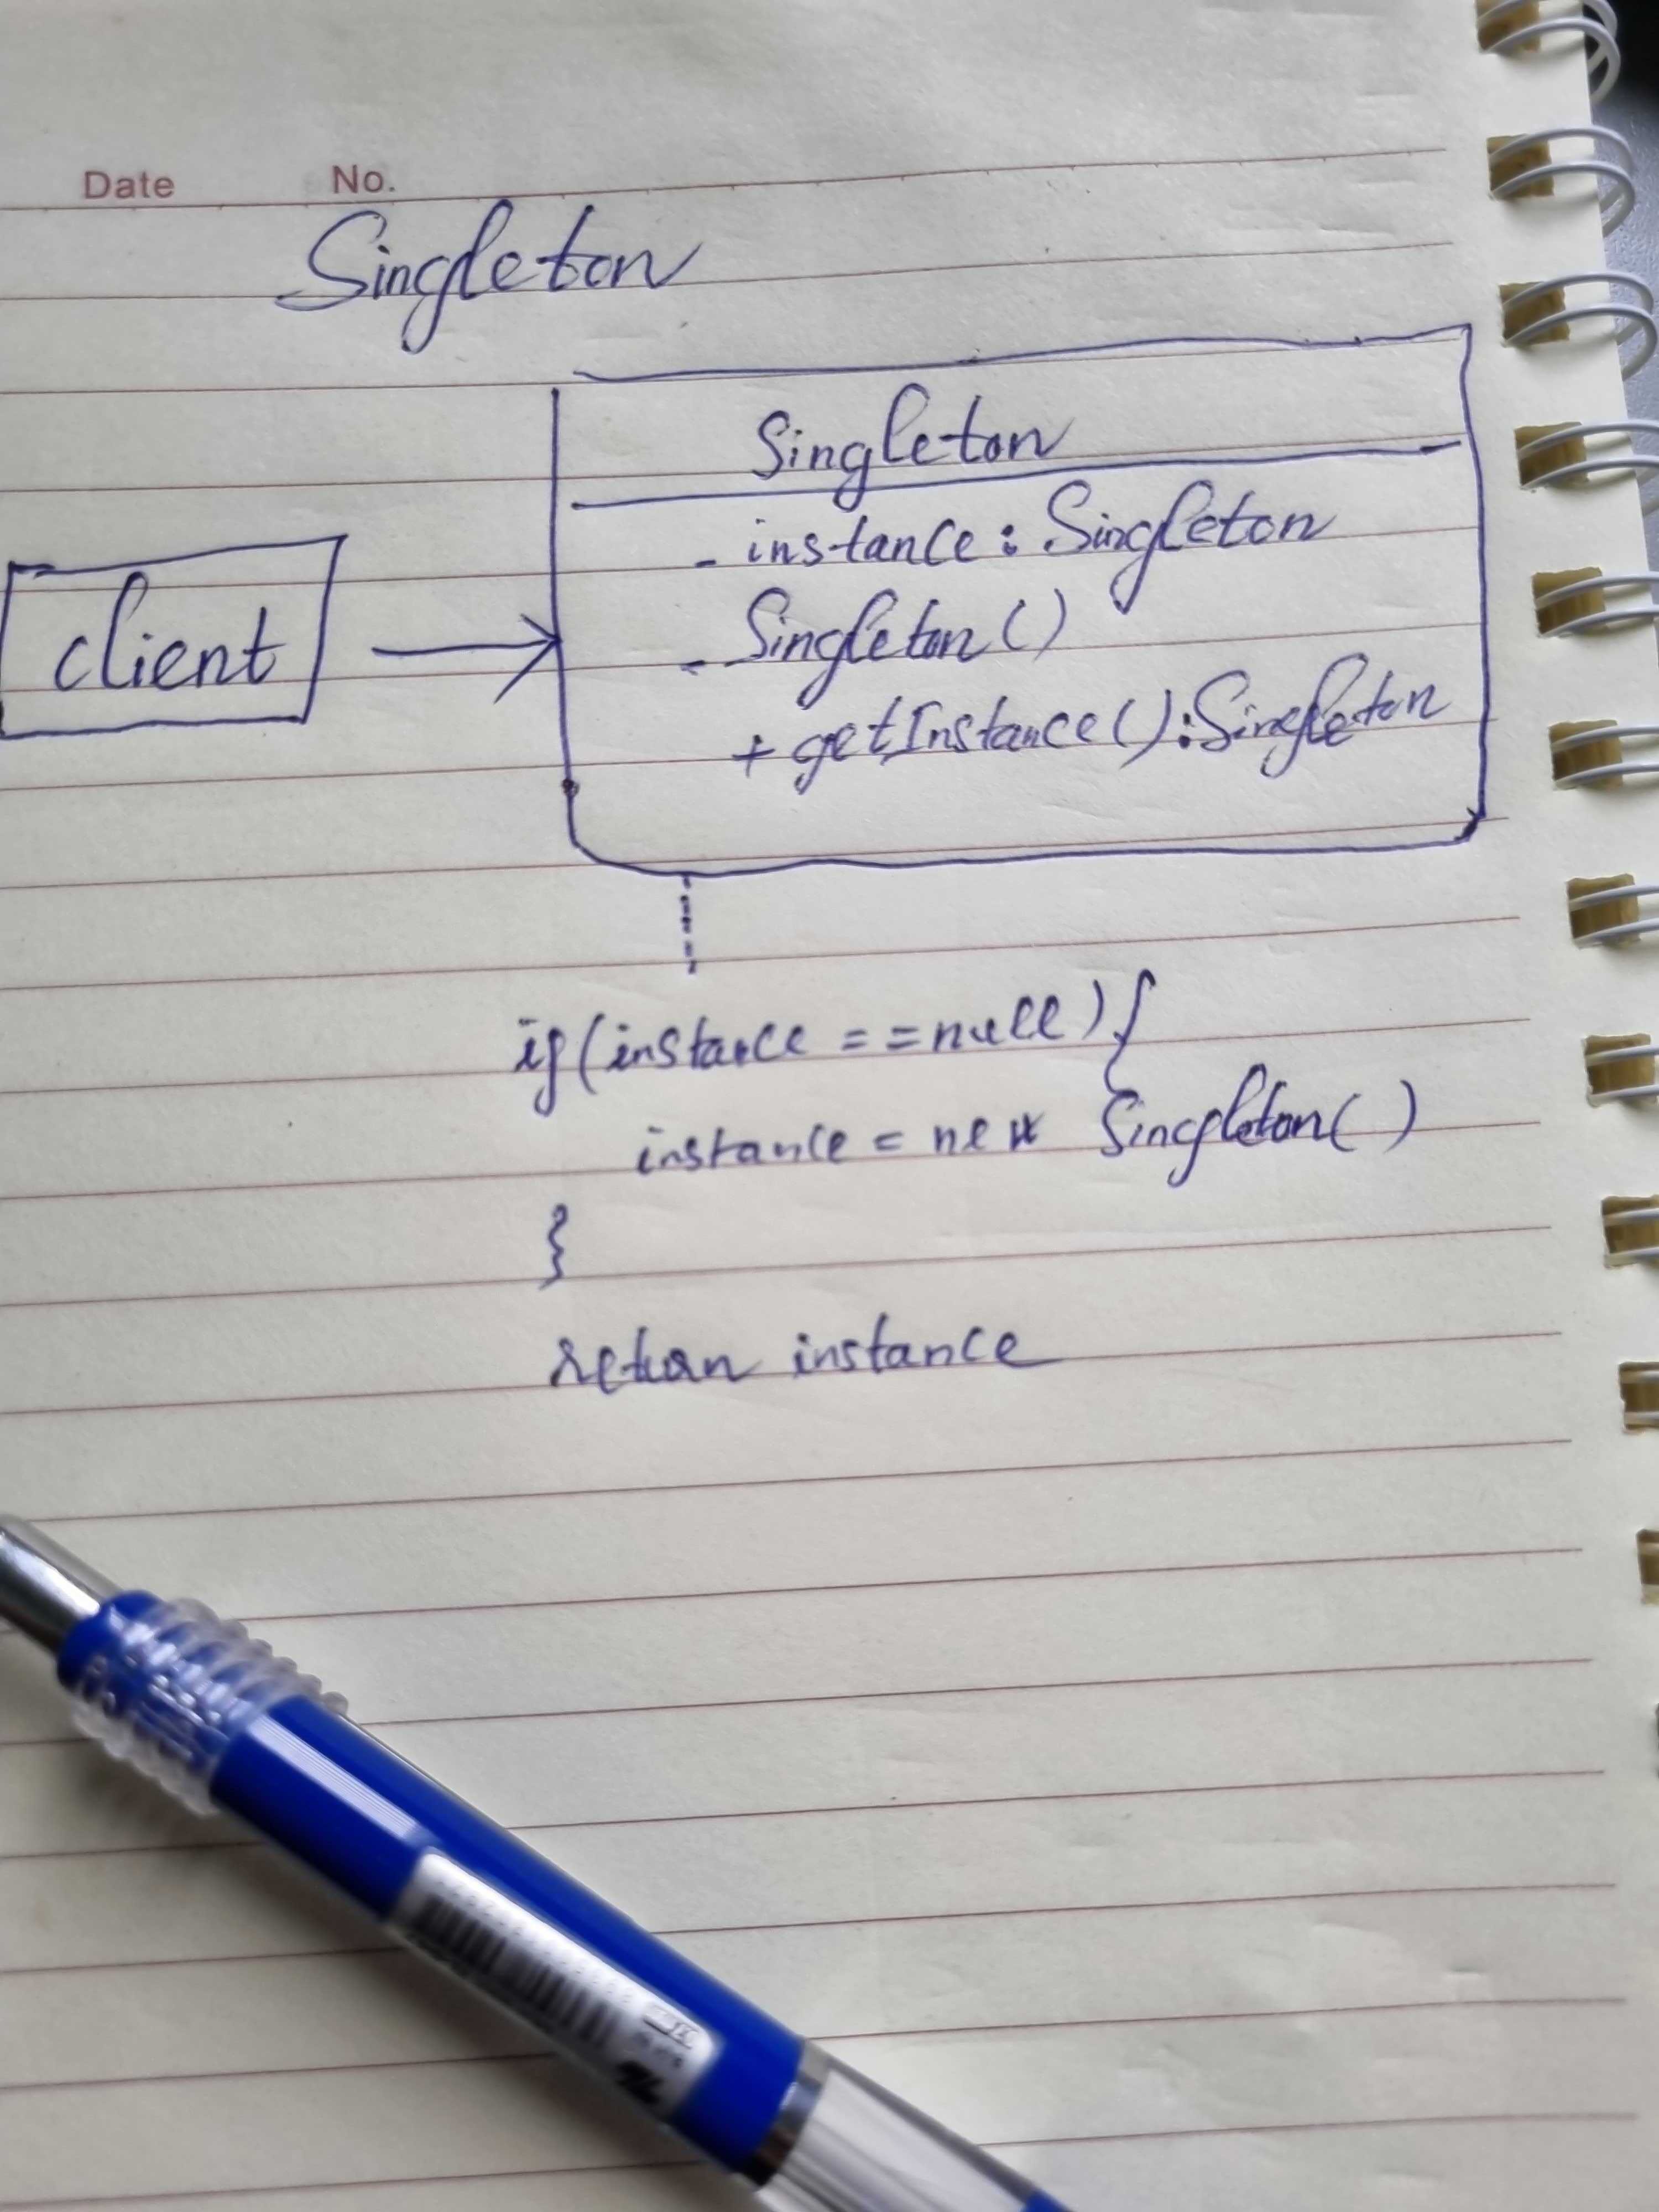 Date No.
Singleton
Singleton
- instance : Singleton
- Singleton()
+ getInstance() : Singleton
client
if(instance == null){
instance = new Singleton()
}
return instance